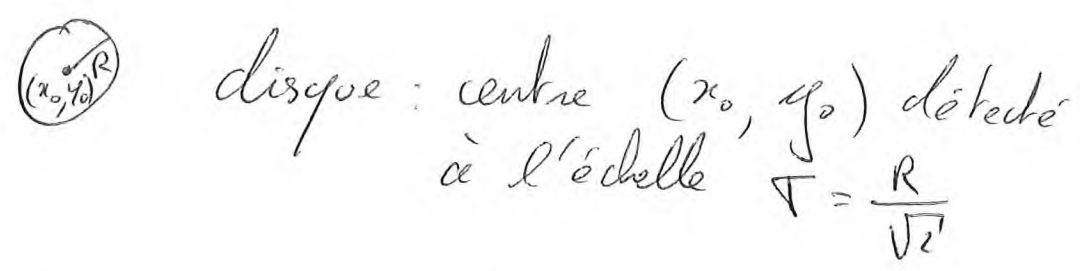 R
(x₀, y₀)
disque : centre (x₀, y₀) détecté
à l'échelle σ = R/√2